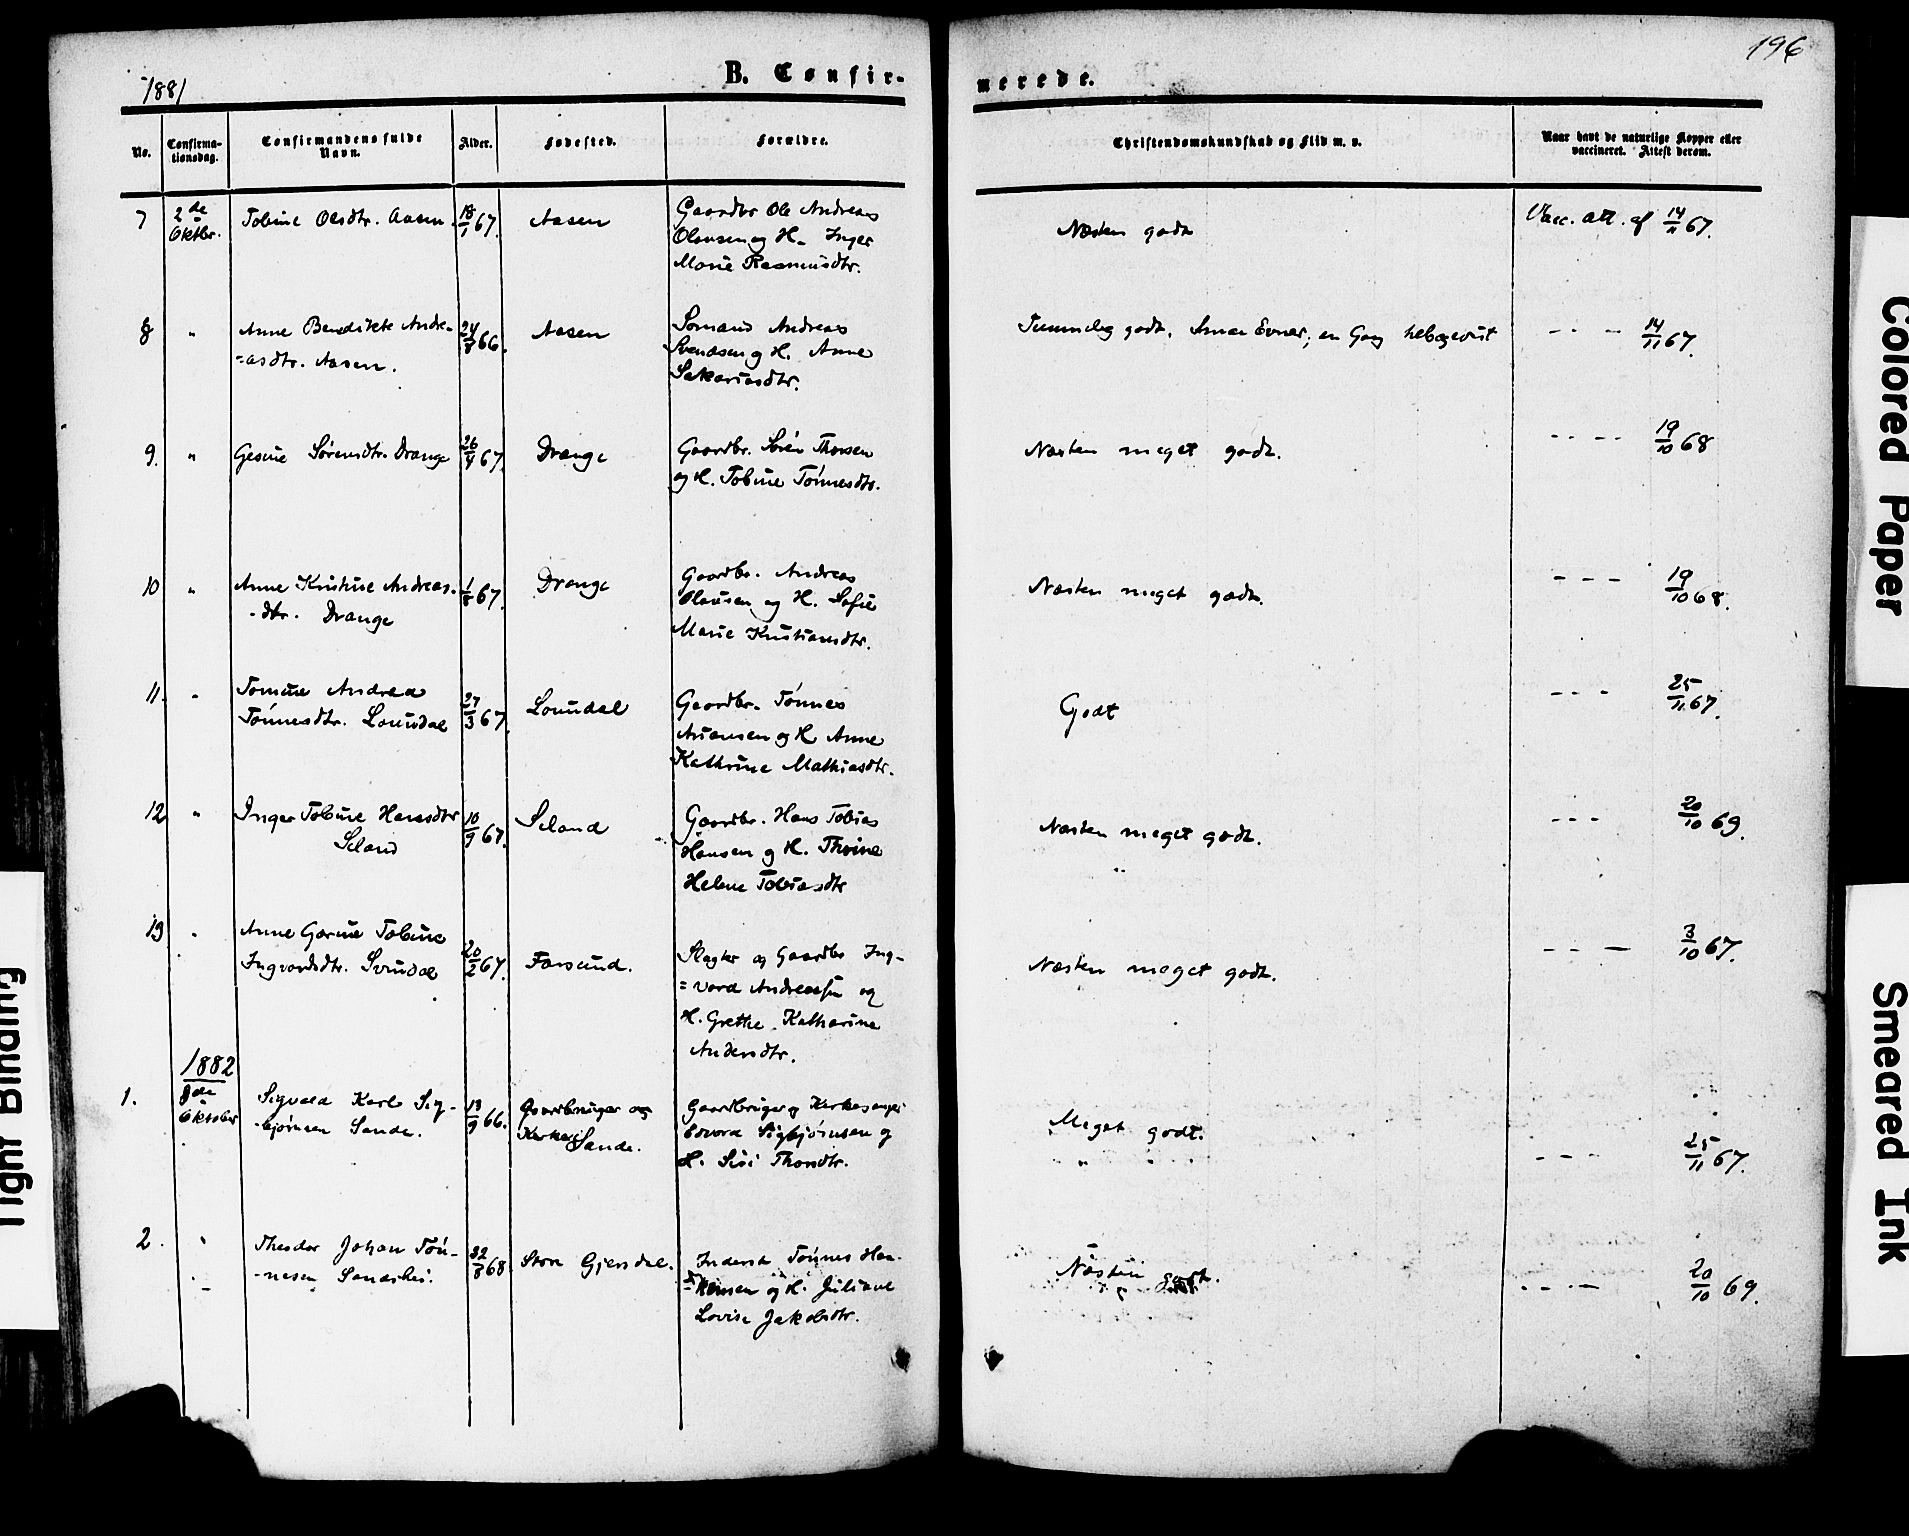 196
1881
B. Confir-
merede.
No.
Confirma-
tionsdag.
Confirmandens fulde
Navn.
Alder.
Fødested.
Forældre.
Christendomskundskab og Flid m. v.
Naar havt de naturlige Kopper eller
vaccineret. Attest derom.
7 2de Oktbr. Tobine Olsdtr. Aasen. 18/1 67. Aasen
Gaardbr Ole Andreas
Olausen og H. Inger
Marie Rasmusdtr.
Næsten godt
Vacc. att. af 14/11 67.
8 " Anne Bendikte Andre-
=asdtr. Aasen. 24/8 66. Aasen
Somand Andreas
Svendsen og H. Anne
Sakariasdtr.
Temmelig godt. Smaa Evner; en Gang
- - - 14/11 67.
9. " Gesine Sørensdtr. Drange 26/4 67. Drange
Gaardbr. Sørén Thorsen
og H. Tobine Tønnesdtr.
Næsten meget godt.
- - - - 19/10 68
10 " Anne Kristine Andreas-
-dtr. Drange 1/8 67. Drange
Gaardbr. Andreas
Olausen og H. Sofie
Marie Kristiansdtr.
Næsten meget godt.
- - - 19/10 68.
11. " Tomine Andrea
Tønnesdtr. Lomdal 27/3 67. Lomdal
Gaardbr. Tønnes
Asiansen og H Anne
Kathrine Mathiasdtr.
Godt
- - - 25/11 67.
12 " Inger Tobine Hansdtr
Seland 10/9 67. Seland
Gaardbr. Hans Tobias
Hansen og H. Thrine
Helene Tobiasdtr
Næsten meget godt.
- - - 20/10 69.
13 " Anne Gurine Tobine
Ingvardsdtr. Svindal 20/2 67. Farsund.
Slagter og Gaardbr Ing-
=vard Andreassen og
H. Grethe Katharina
Andersdtr.
Næsten meget godt.
- - - 3/10 67.
1882
1. 8de Oktober Sigvald Karl Sig-
-bjørnsen Sande. 13/9 66. Gaardbruger og
Kirkes Sande.
Gaardbruger og Kirkesanger
Edvard Sigbjørnsen og
H. Siri Thorsdtr.
Meget godt.
- - - 25/11 67.
2. " Theodor Johan Tøn-
-nesen Sandshei. 22/8 68 Store Gjersdal.
Inderst Tønnes Han-
=Hansen og H. Juliane
Lovise Jakobsdtr.
Næsten godt.
- - - 20/10 69.
Colored Paper
Smeared Ink
Tight Binding